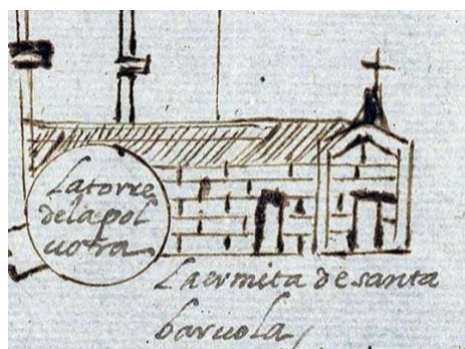 la torre
de la pol
uora
la ermita de santa
baruola